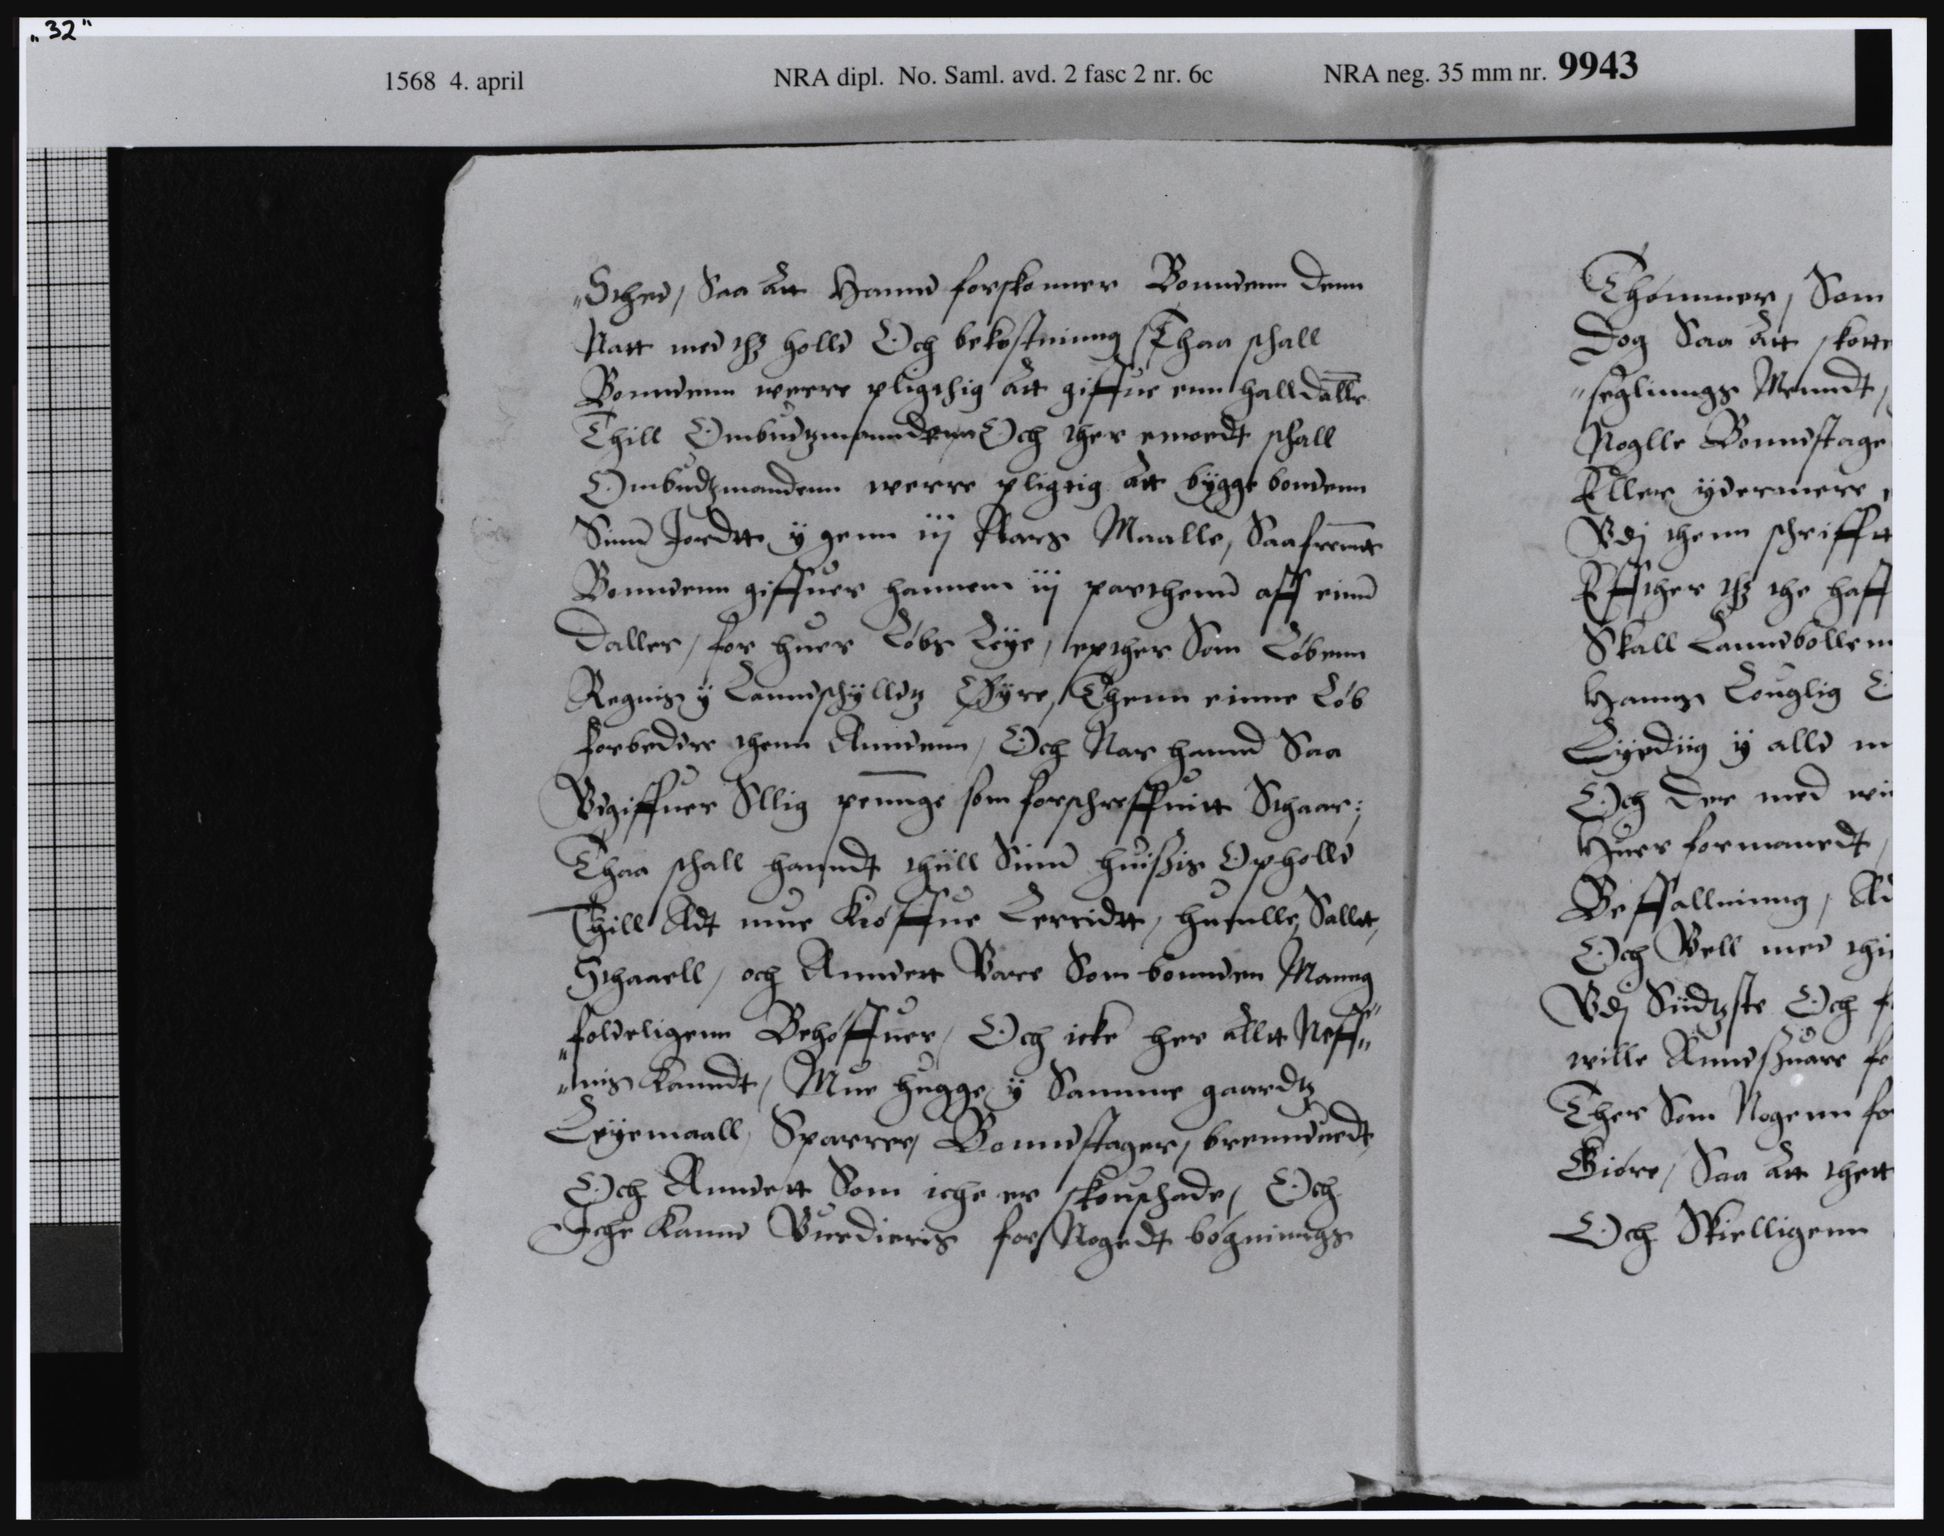 "32"
1568 4. april NRA dipl. No. Saml. avd. 2 fasc 2 nr. 6c NRA neg. 35 mm nr. 9943
Sthed, Saa Att Hannd forskonner Bonndenn Denn
Natt med thz holld Och bekostninng, Thaa schall
Bonndenn werre pligthig att giffue enn hall dalle
Thill Ombudzmanndenn Och ther emodt schall
Ombudzmandenn werre pligtig att bÿgge bondenn
Sinn Jordtt ÿ genn iij Aars Maalle, Saafremtt
Bonndenn giffuer hannem iij parthenn aff einn
Daller, for huer Løbs Leÿe, epther Som Løbenn
Regnis ÿ Landschÿlldz Øÿre, Thenn einne Løb
forbedere thenn Anndenn, Och Nar hannd Saa
Vdgiffuer Sllig pennge som forschreffuitt Sthaar;
Thaa schall hanndt thiill Sinn huißis Opholld
Thill Adt mue Kiøffue Lerridtt, humlle, Salltt,
Sthaaell, och Anndett Vare Som bonnden Manng
foldeligenn Behøffuer, Och icke her alltt Neff
nis kanndt, Mue hugge ÿ Samme gaardz
Leÿemaall, Sparrer, Bonndstager, brenneuedt
Och Anndett Som iche er skouschade, Och
Iche kannd Vurdieris for Nogedt bøgninngs
Thømmer, Som
Dog Saa Att skott
seglinngs Menndt,
Noglle Bonndstage
Eller ÿdermere
Vdj thenn schrifftt
Effther thz the haff
Skall Lanndbollenn
Hanns Louglig
Lÿediig ÿ alld m
Och der med wii
Huer formanedt,
Beffallninng, Ad
Och Vell med thi
Vdj Siidzste Och f
wille Anndszuare fo
Ther Som Nogenn for
Giøre, Saa att thett
Och Skielligenn